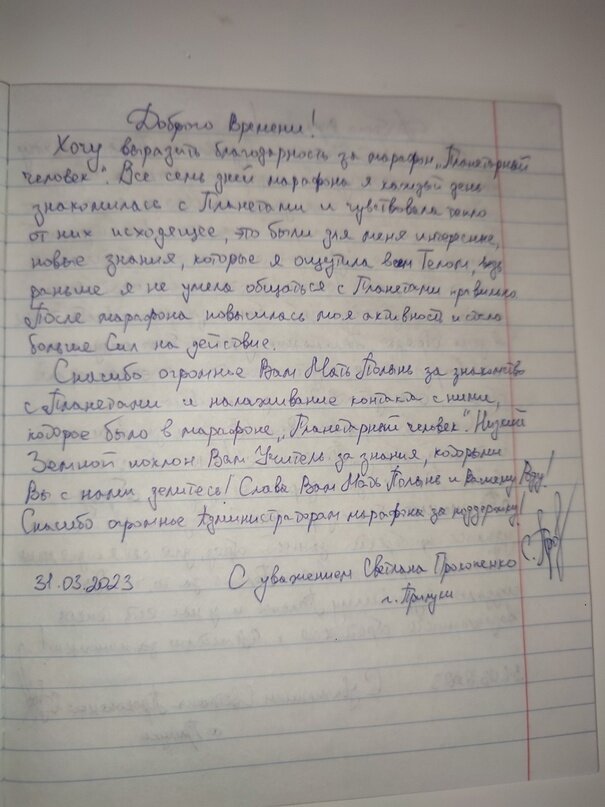 Доброго Времени!
Хочу выразить благодарность за марафон „Планетарный
человек". Все семь дней марафона я каждый день
знакомилась с Планетами и чувствовала тепло
от них исходящее, это были для меня интересные,
новые знания, которые я ощутила всем Телом, ведь
раньше я не умела общаться с Планетами правильно.
После марафона повысилась моя активность и стало
больше Сил на действие.
Спасибо огромное Вам Мать Полынь за знакомство
с Планетами и налаживание контакта с ними,
которое было в марафоне „Планетарный человек". Низкий
Земной поклон Вам Учитель за знания, которыми
Вы с нами делитесь! Слава Вам Мать Полынь и Вашему Роду!
Спасибо огромное Администраторам марафона за поддержку!
31.03.2023 С уважением Светлана Прокопенко
г.